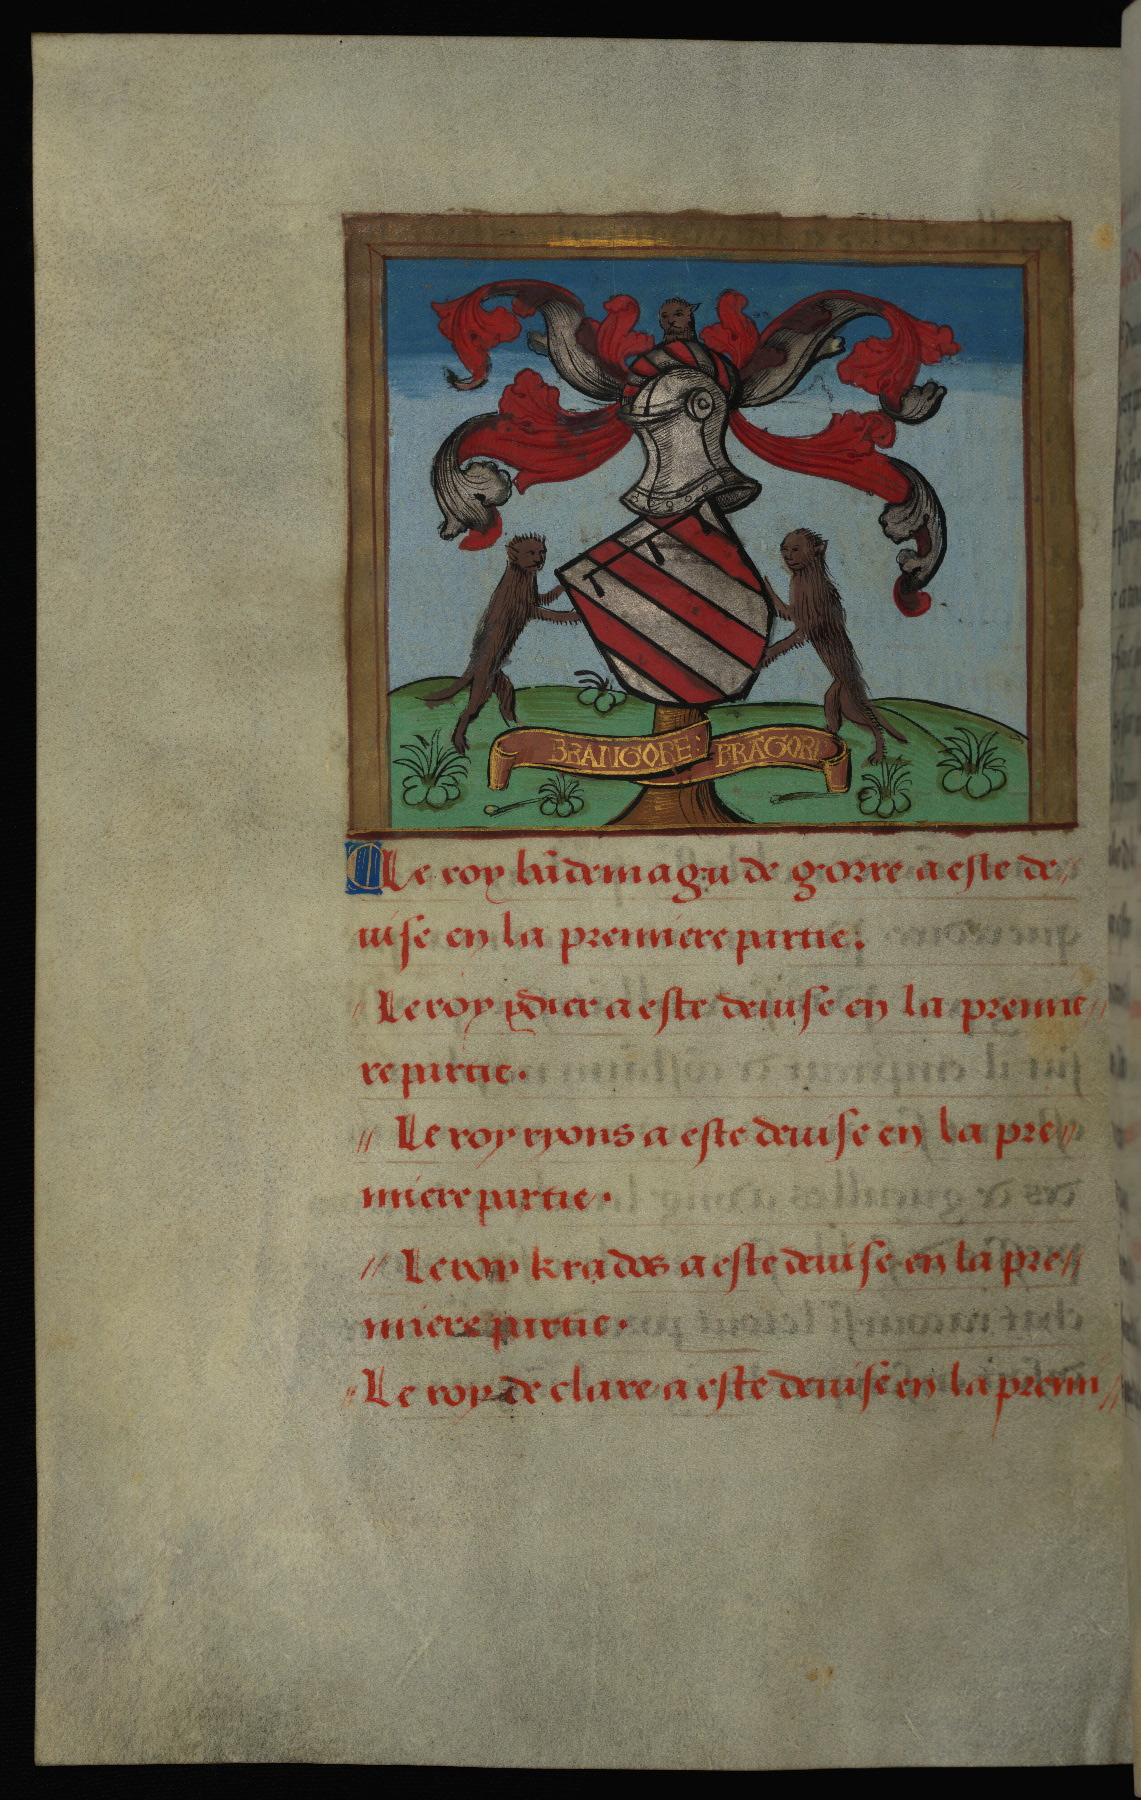 BRANGORE: BRĀGORE
Le roy bādemagu de gorre a este de//
uise en la premiere partie.
// Le roy ydier a este deuise en la premie//
re partie.
// Le roy ryons a este deuise en la pre//
miere partie.
// Le roy krados a este deuise en la pre//
miere partie.
// Le roy de clare a este deuise en la premi//